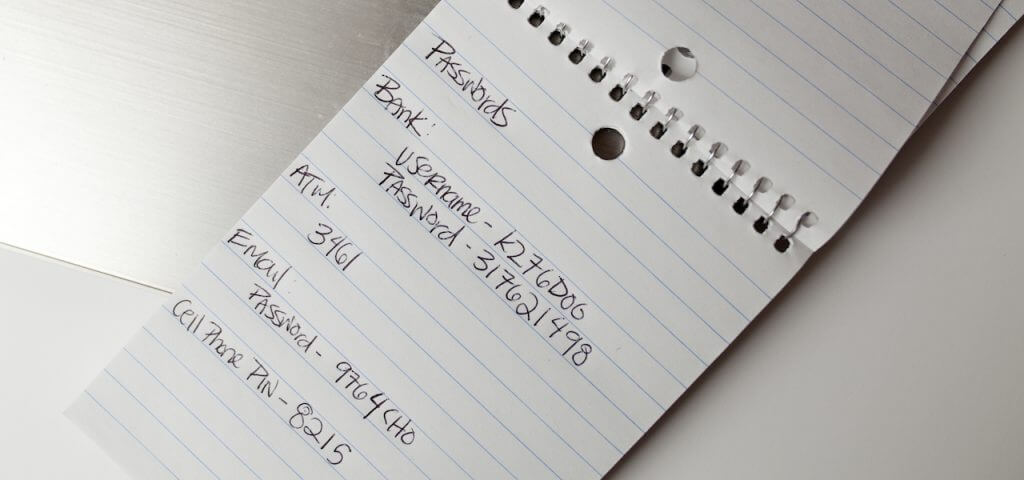 Passwords
Bank:
Username - K276DOG
Password - 317621498
ATM.
3461
Email:
Password - 9764CHO
Cell Phone PIN - 8215